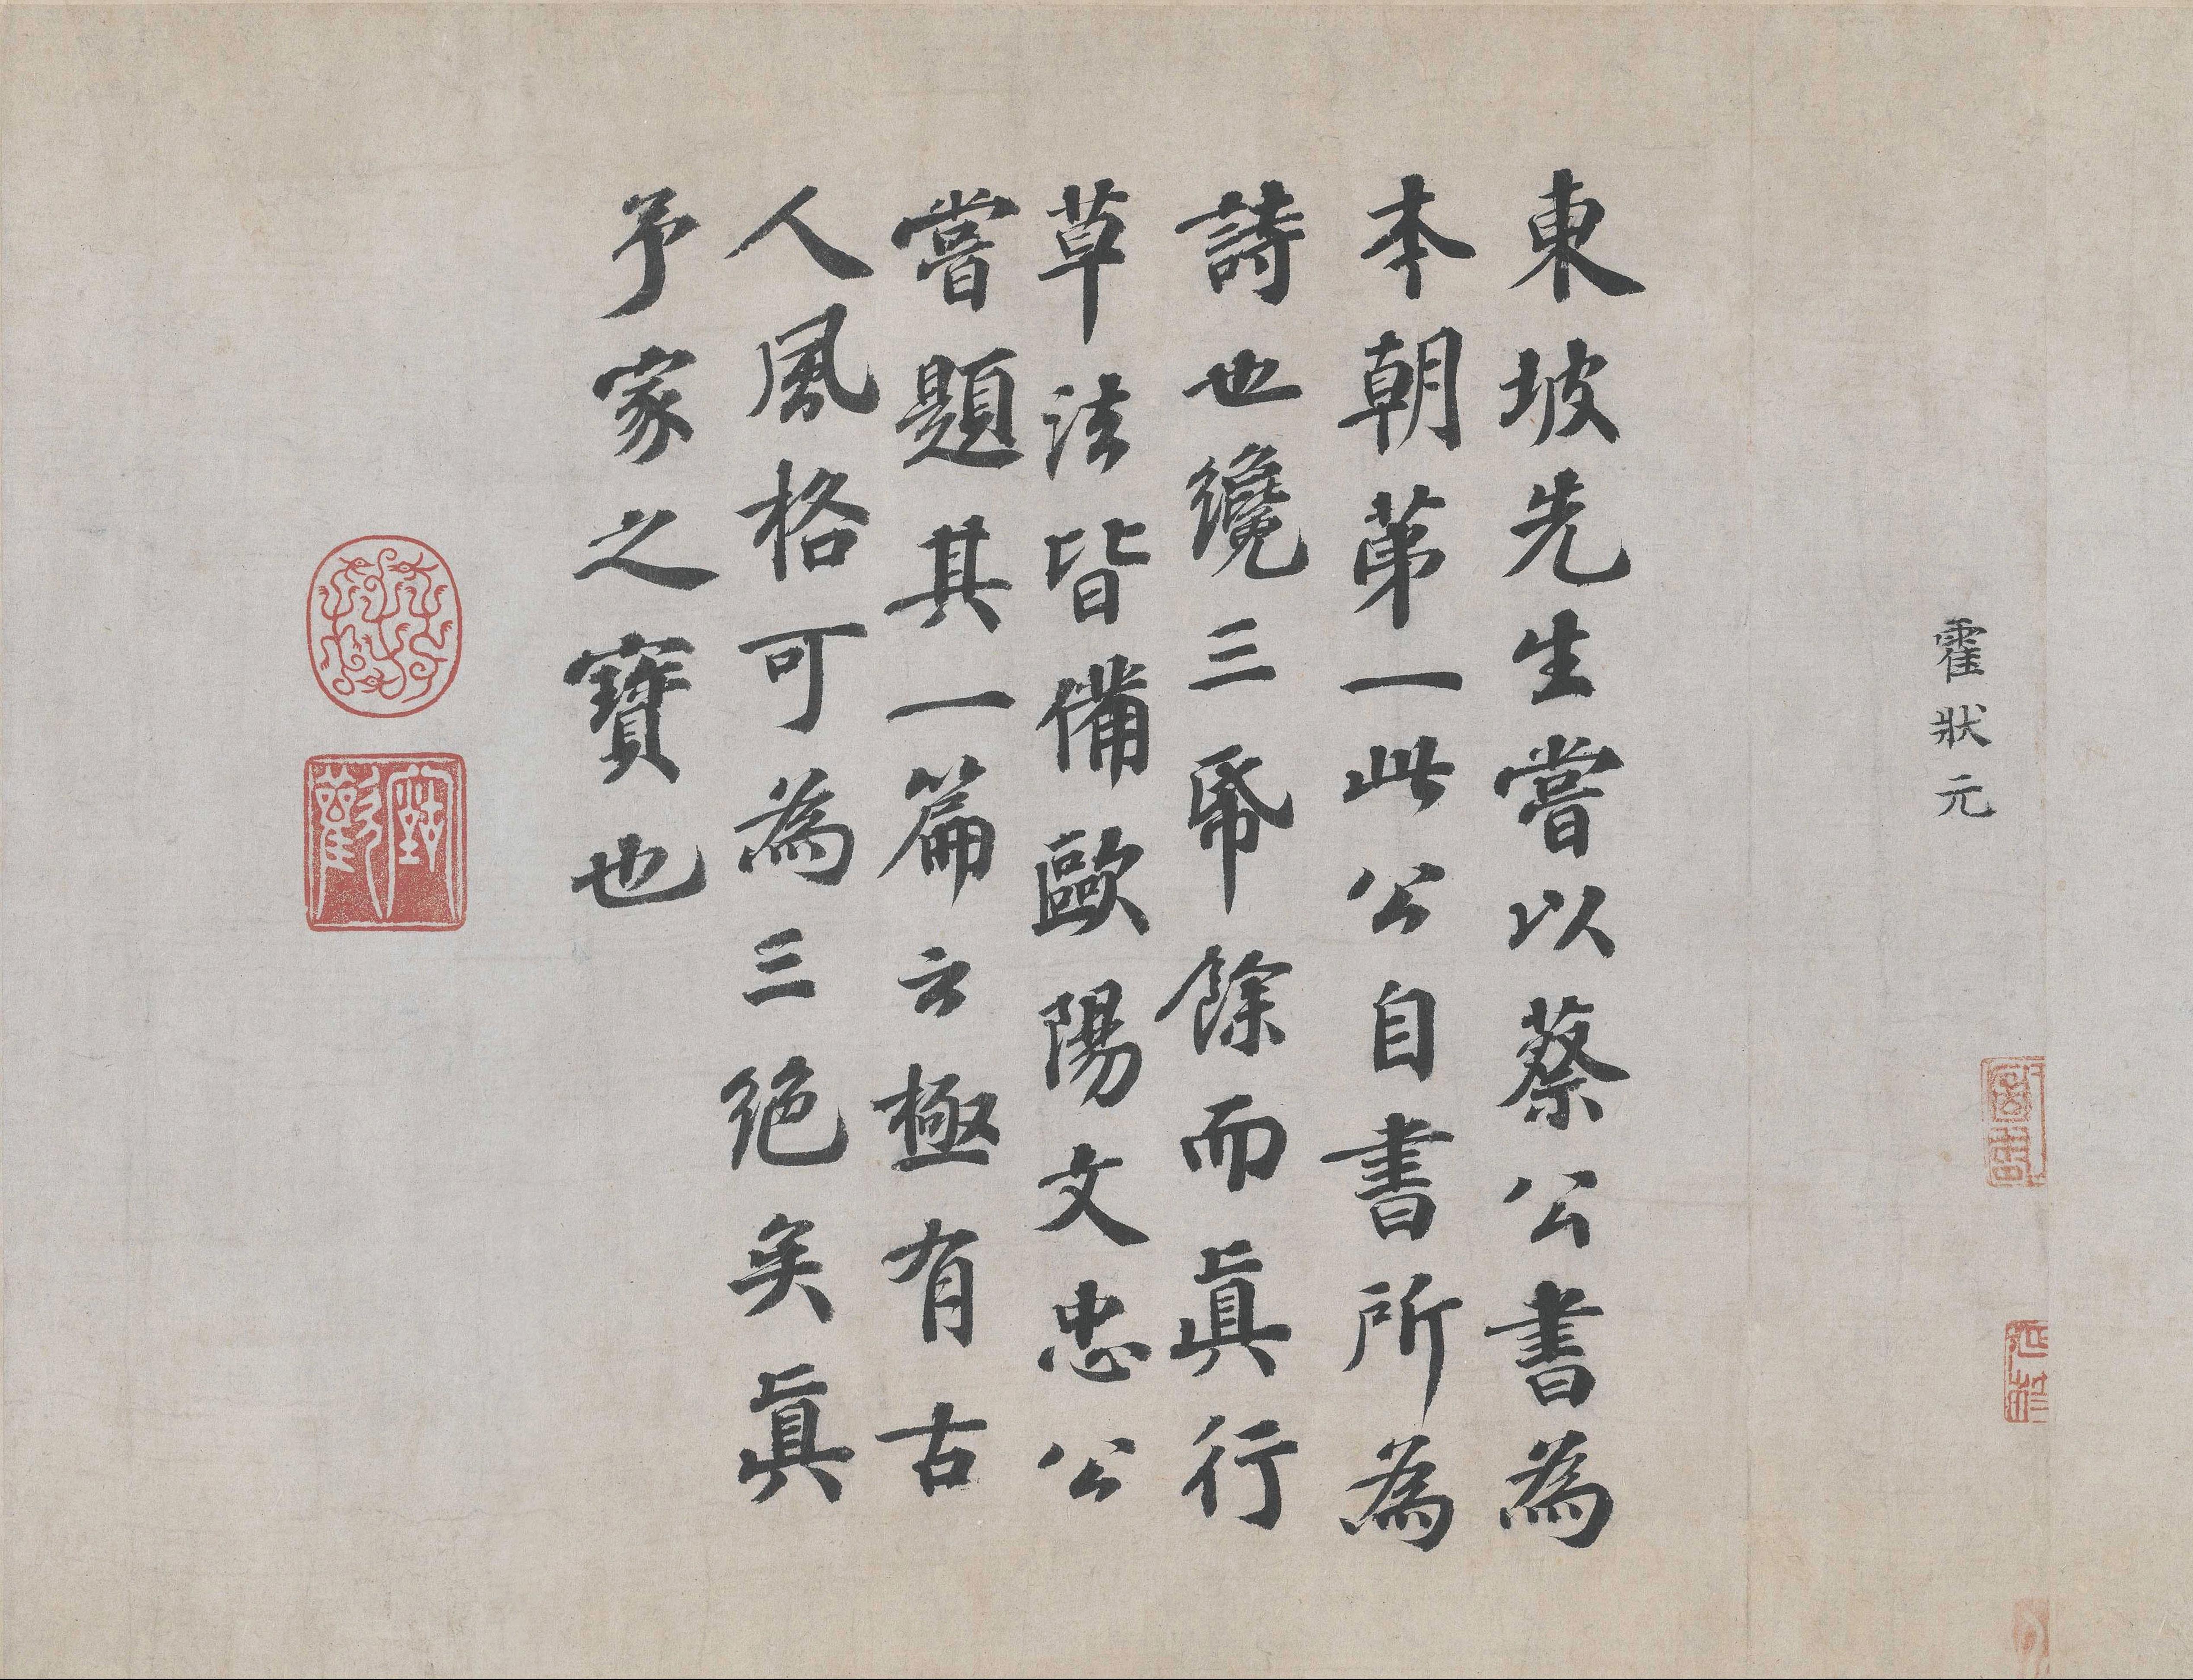 霍狀元
東坡先生嘗以蔡公書為
本朝苐一此公自書所為
詩也纔三帋餘而眞行
草法皆備歐陽文忠公
嘗題其一篇云極有古
人風格可為三絕矣眞
予家之寶也